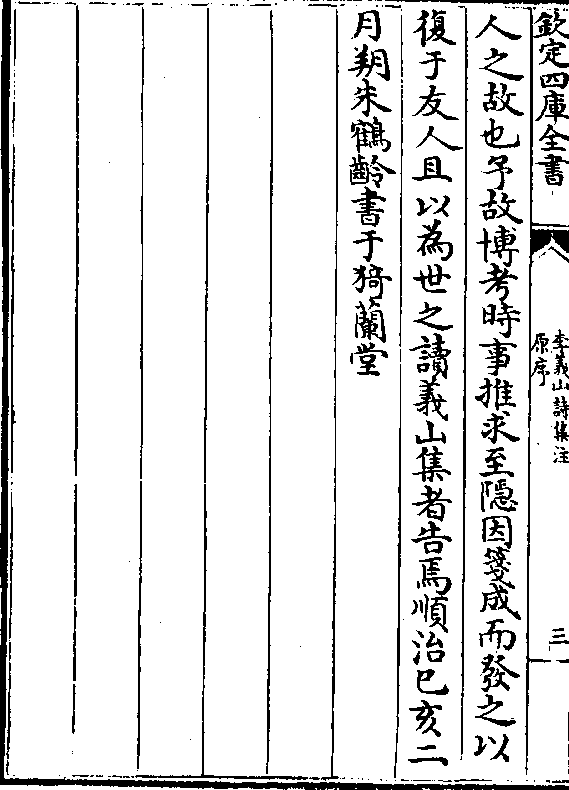 欽定四庫全書
李義山詩集注
原序
三
人之故也予故博考時事推求至隱因箋成而發之以
復于友人且以為世之讀義山集者告焉順治已亥二
月朔朱鶴齡書于猗蘭堂